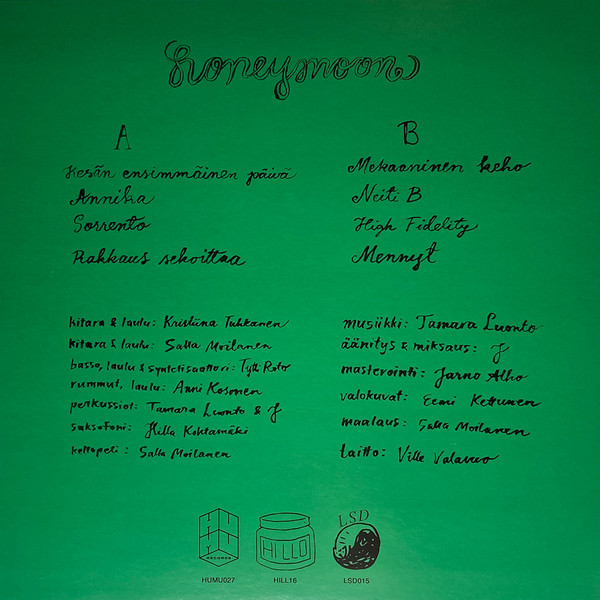 honeymoon
A
Kesän ensimmäinen päivä
Annika
Sorrento
Rakkaus sekoittaa
B
Mekaaninen keho
Neiti B
High Fidelity
Mennyt
kitara & laulu: Kristiina Tuhkanen
kitara & laulu: Salla Moilanen
basso, laulu & syntetisaattori: Tytti Roto
rummut, laulu: Anni Kosonen
perkussiot: Tamara Luonto & J
saksofoni: Hilla Kohtamäki
kellopeli: Salla Moilanen
musiikki: Tamara Luonto
äänitys & miksaus: J
masterointi: Jarno Alho
valokuvat: Eemi Kettunen
maalaus: Salla Moilanen
taitto: Ville Valavuo
HUMU
RECORDS
HUMU027
HILLO
HILL16
LSD
LSD015